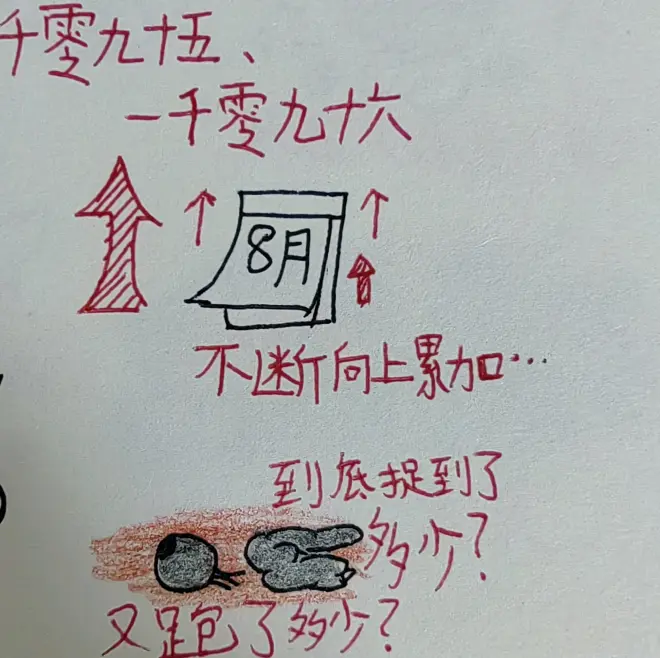 千零九十五、
一千零九十六
8月
不断向上累加…
到底捉到了
多少?
又跑了多少?